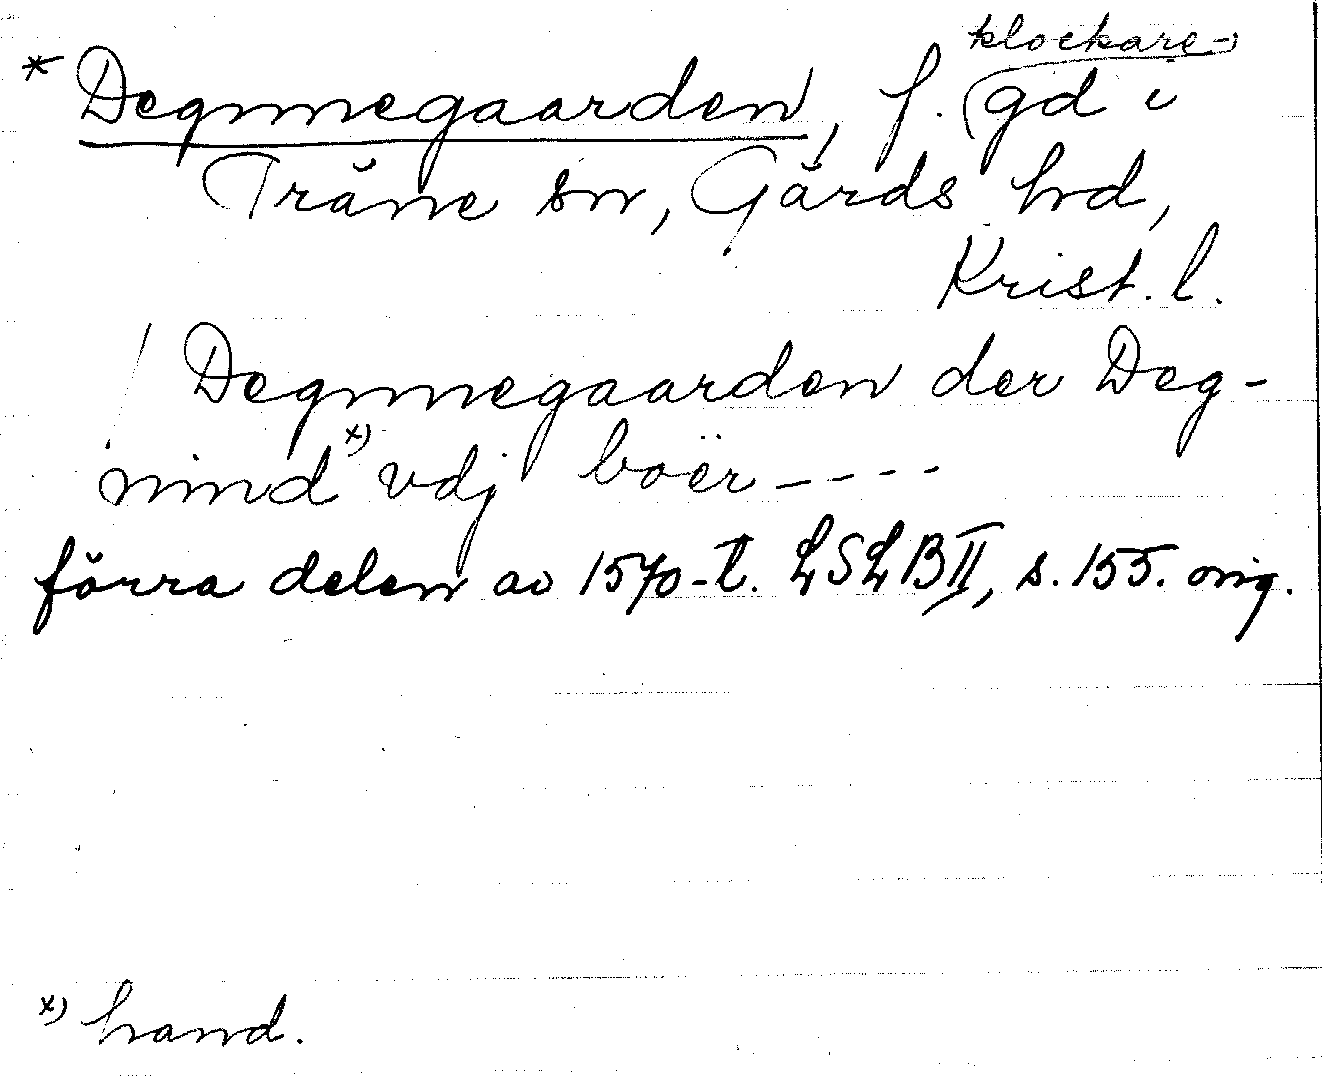 klockare-
* Degnnegaarden, f. gd i
Träne sn, Gärds hd,
Krist. l.
/ Degnnegaarden der Deg-
nind x) vdj boër ----
förra delen av 1570-t. LSLB II, s. 155. orig.
x) hand.